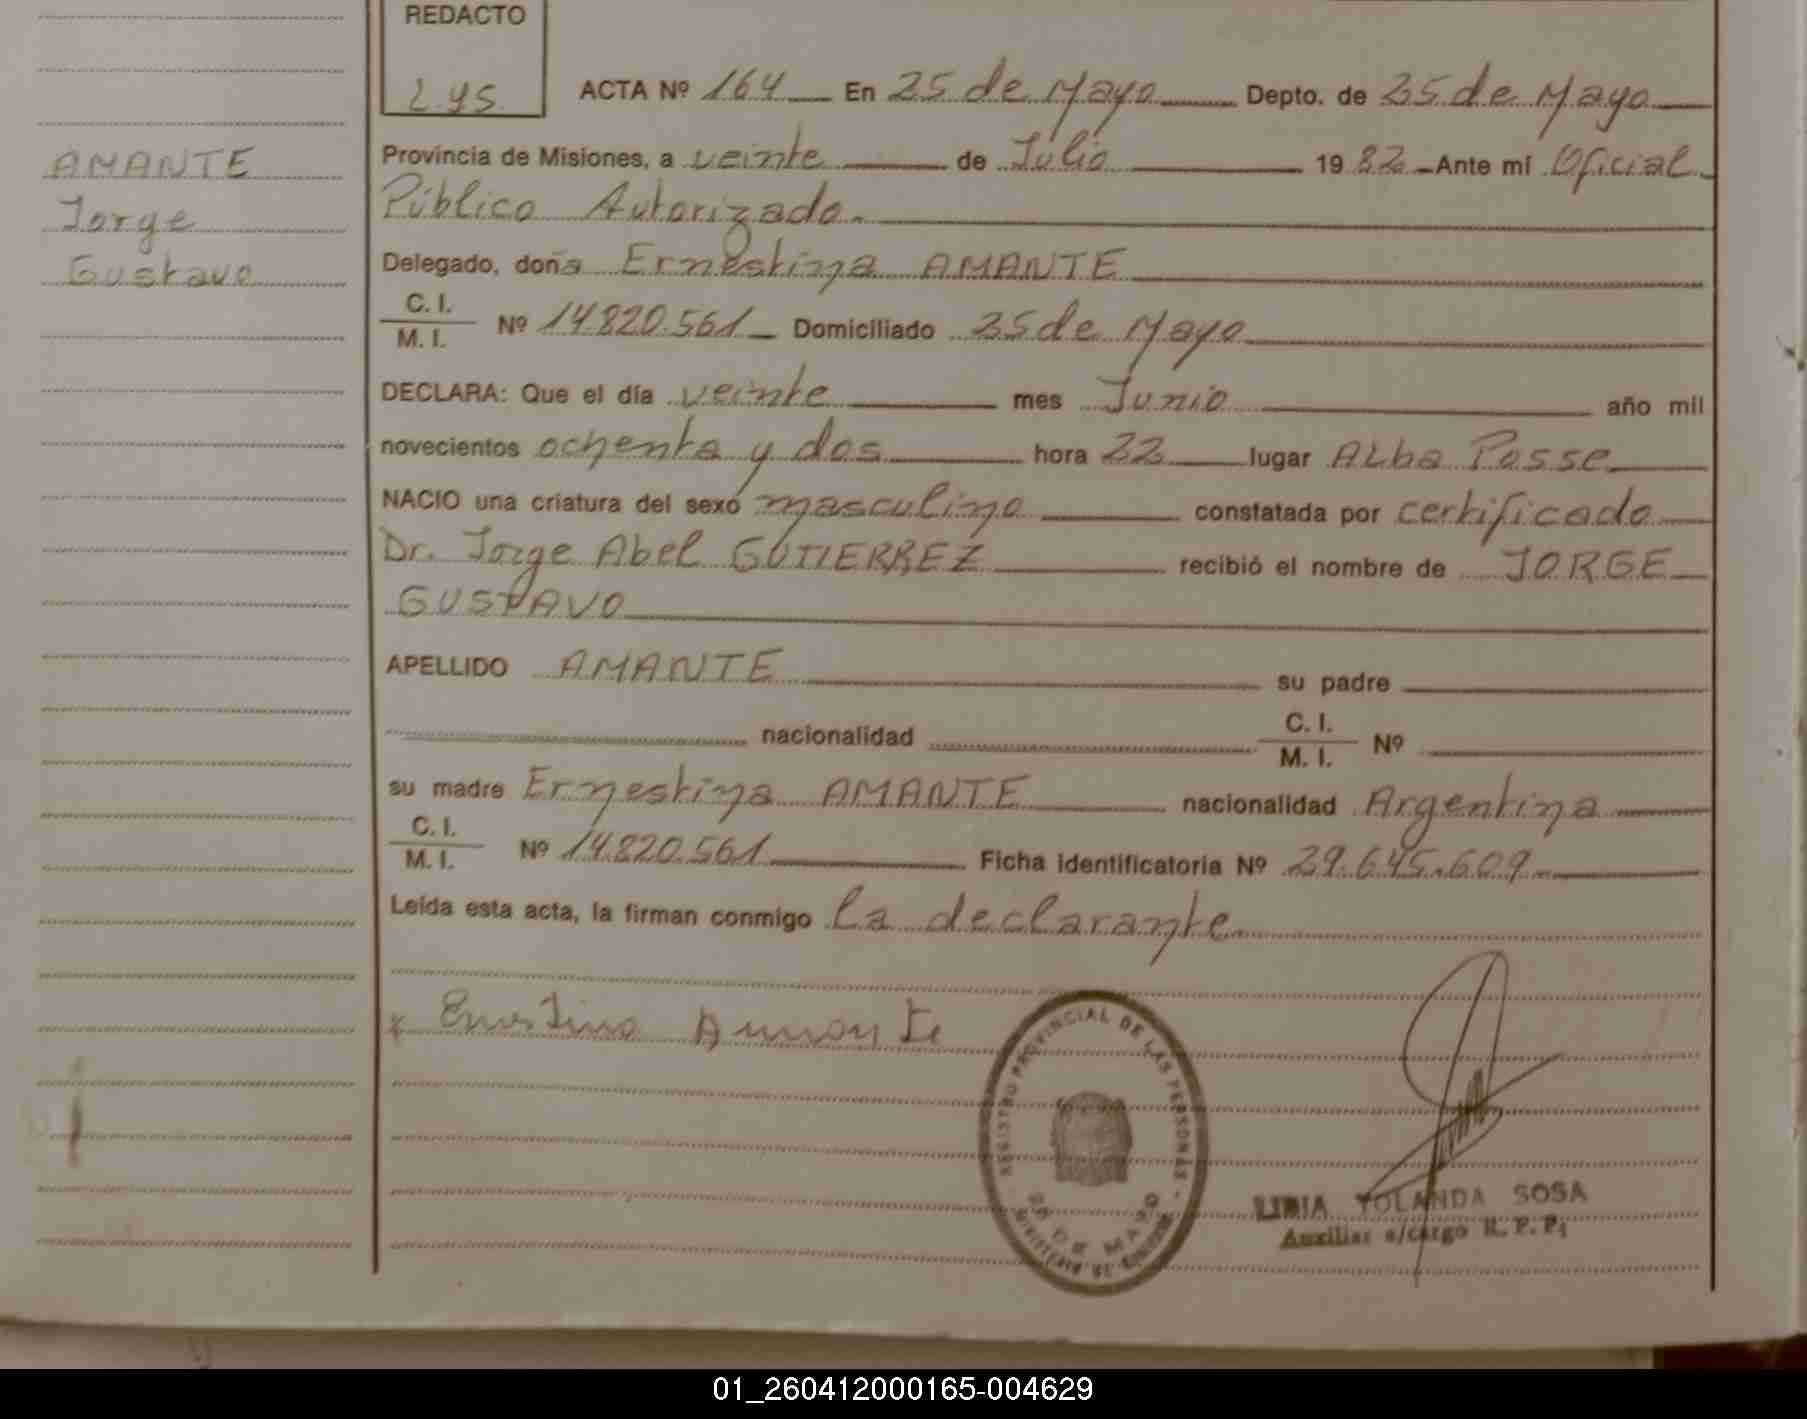 REDACTO
L.Y.S.
ACTA Nº 164 En 25 de Mayo Depto. de 25 de Mayo
Provincia de Misiones, a veinte de Julio 1982 Ante mí Oficial
Público Autorizado.
AMANTE
Jorge
Gustavo
Delegado, doña Ernestina AMANTE
C. I.
M. I. Nº 14.820.561 Domiciliado 25 de Mayo
DECLARA: Que el día veinte mes Junio año mil
novecientos ochenta y dos hora 22 lugar Alba Posse
NACIO una criatura del sexo masculino constatada por certificado
Dr. Jorge Abel GUTIERREZ recibió el nombre de JORGE
GUSTAVO
APELLIDO AMANTE su padre
nacionalidad C. I. M. I. Nº
su madre Ernestina AMANTE nacionalidad Argentina
C. I.
M. I. Nº 14.820.561 Ficha identificatoria Nº 29.645.609
Leída esta acta, la firman conmigo la declarante
x Ernestina Amante
REGISTRO PROVINCIAL DE LAS PERSONAS
25 DE MAYO
LIBIA YOLANDA SOSA
Auxiliar a/cargo R. P. P.
01_260412000165-004629